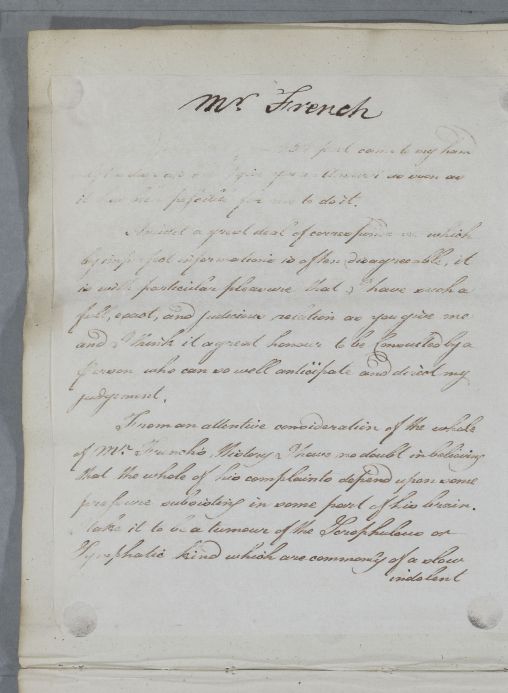 Mr. French
just came to my hand
so soon as
it was possible for me to do it.
Amidst a great deal of correspondence which
by imperfect informations is often disagreeable, it
is with particular pleasure that I have such a
full, exact, and judicious relation as you give me
and I think it a great honour to be Consulted by a
Person who can so well anticipate and direct my
judgement.
From an attentive consideration of the whole
of Mr. French's History I have no doubt in believing
that the whole of his complaints depend upon some
pressure subsisting in some part of his brain.
I take it to be a tumour of the Scrophulous or
Lymphatic kind which are commonly of a slow
indolent